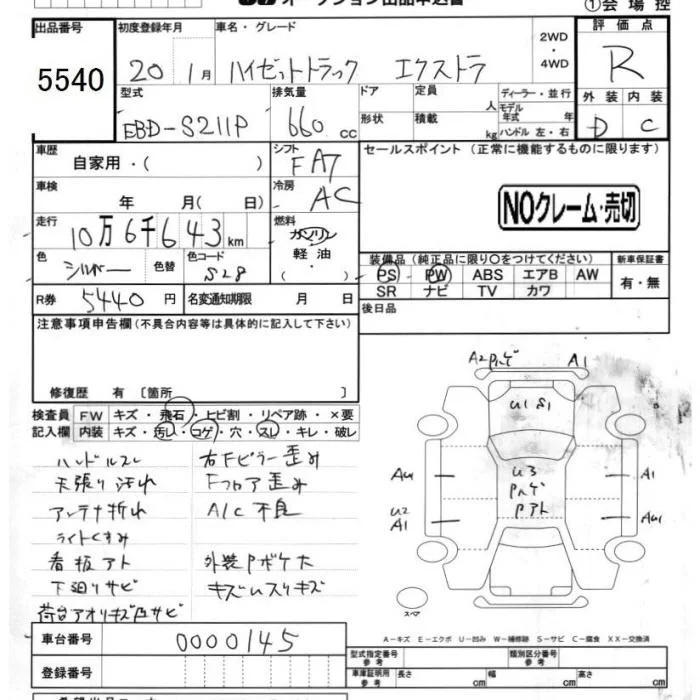 オークション出品申込書
①会場控
出品番号 初度登録年月 車名・グレード 評価点
5540 20 1月 ハイゼットトラック エクストラ 2WD・4WD R
型式 排気量 ドア 定員 ディーラー・並行 外装 内装
EBD-S211P 660cc 形状 積載 人 kg モデル年式 年 ハンドル 左・右 D C
車歴 シフト セールスポイント (正常に機能するものに限ります)
自家用・( ) FA7
車検 冷房
年 月( 日) AC NOクレーム・売切
走行 燃料
10万6千643km ガソリン
軽油
・( )
色 色替 色コード 装備品(純正品に限り○をつけてください) 新車保証書
シルバー S28 PS PW ABS エアB AW 有・無
SR ナビ TV カワ
R券 5440円 名変通知期限 月 日 後日品
注意事項申告欄(不具合内容等は具体的に記入して下さい)
修復歴 有 〔箇所 〕
検査員 FW キズ・飛石・ヒビ割・リペア跡・×要
記入欄 内装 キズ・汚レ・コゲ・穴・スレ・キレ・破レ
ハンドルスレ 右Fピラー歪み
天張り汚れ Fフロア歪み
アンテナ折れ A/C不良
ライトくすみ
看板アト 外装Pボケ大
下廻りサビ キズUスリキズ
荷台アオリキズ凹サビ
A2Pハゲ A1
U1 S1
A4 U3 A1
Pハゲ
U2 Pアト
A1 AU1
スペア
A-キズ E-エクボ U-凹み W-補修跡 S-サビ C-腐食 XX-交換済
車台番号 0000145
型式指定番号 参考 類別区分番号 参考
登録番号
車庫証明用 参考 長さ cm 幅 cm 高さ cm